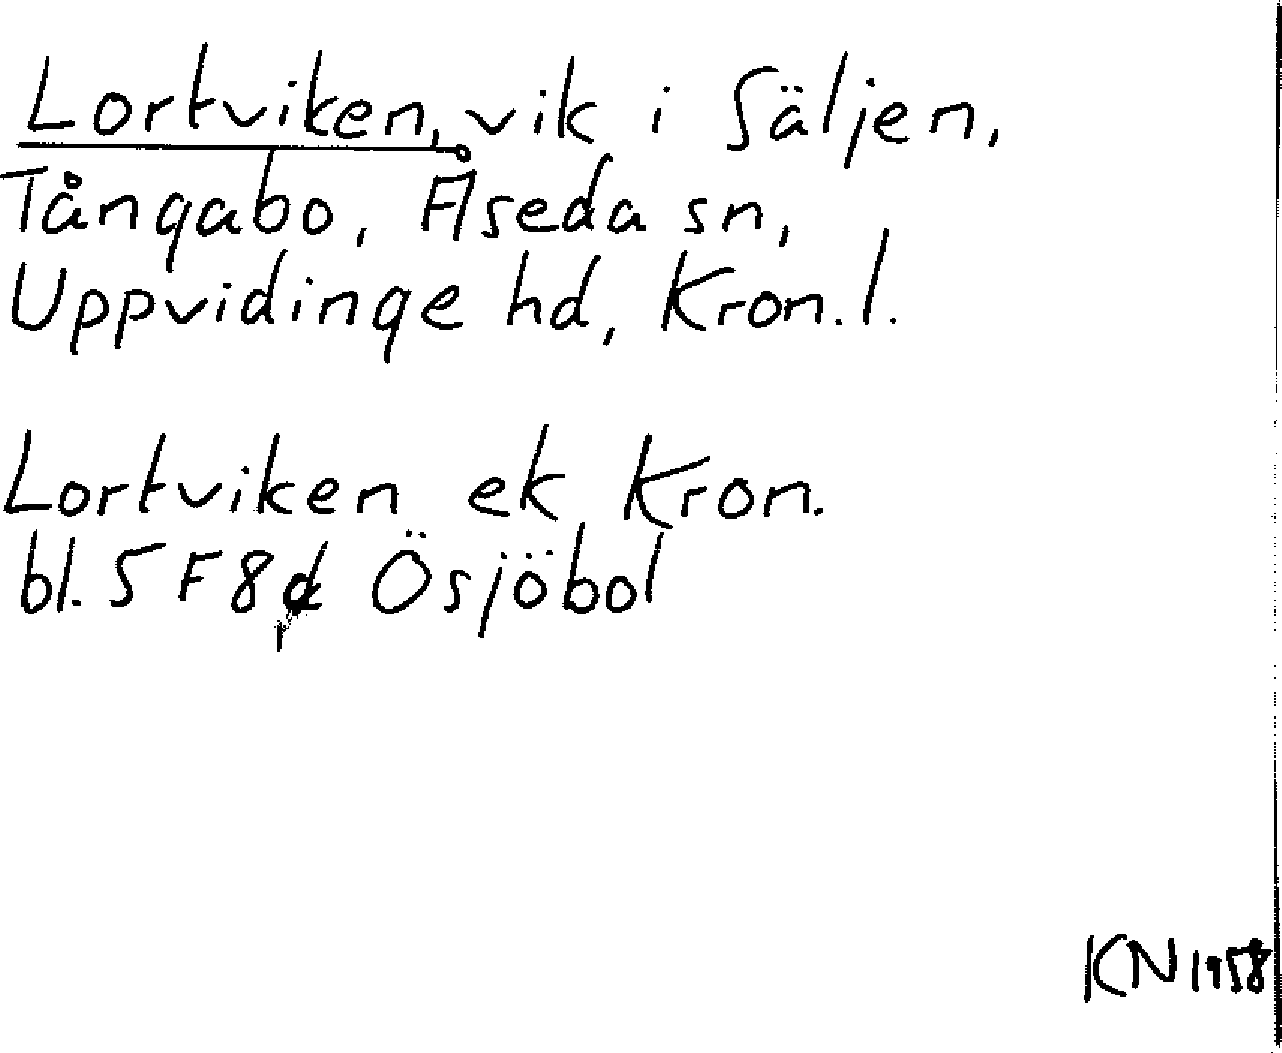 Lortviken, vik i Säljen,
Tångabo, Åseda sn,
Uppvidinge hd, Kron. l.
Lortviken ek Kron.
bl. 5 F 8 d Ösjöbol
KN 1958